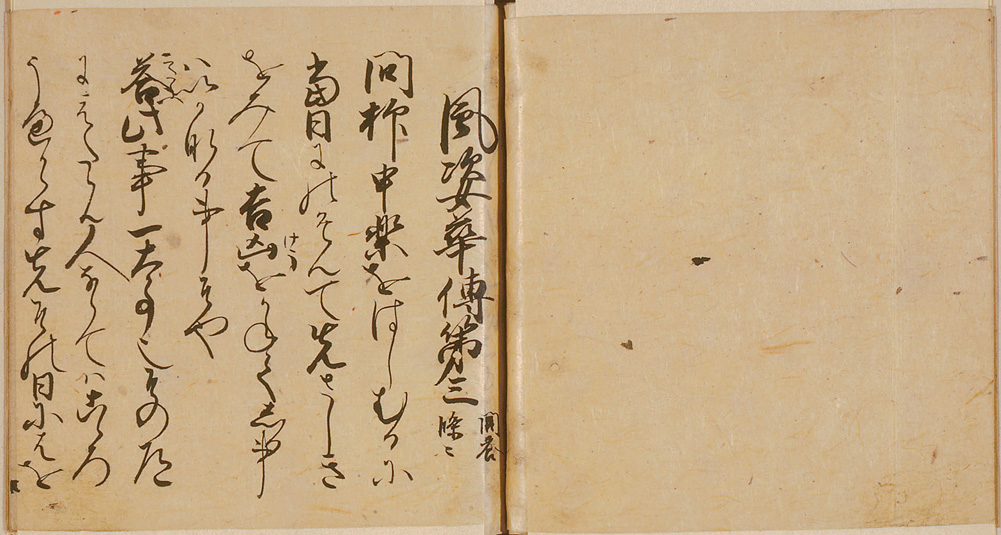 風姿華傳第三 問答條々
問抑申楽をはしむるに
當日にのそんて先さしき
をみて吉凶をかねてしる事
けう
はいかなる事そや
こたふ
答此事一大事也その道
にえたらん人ならてはこころ
うへからす先その日にはを